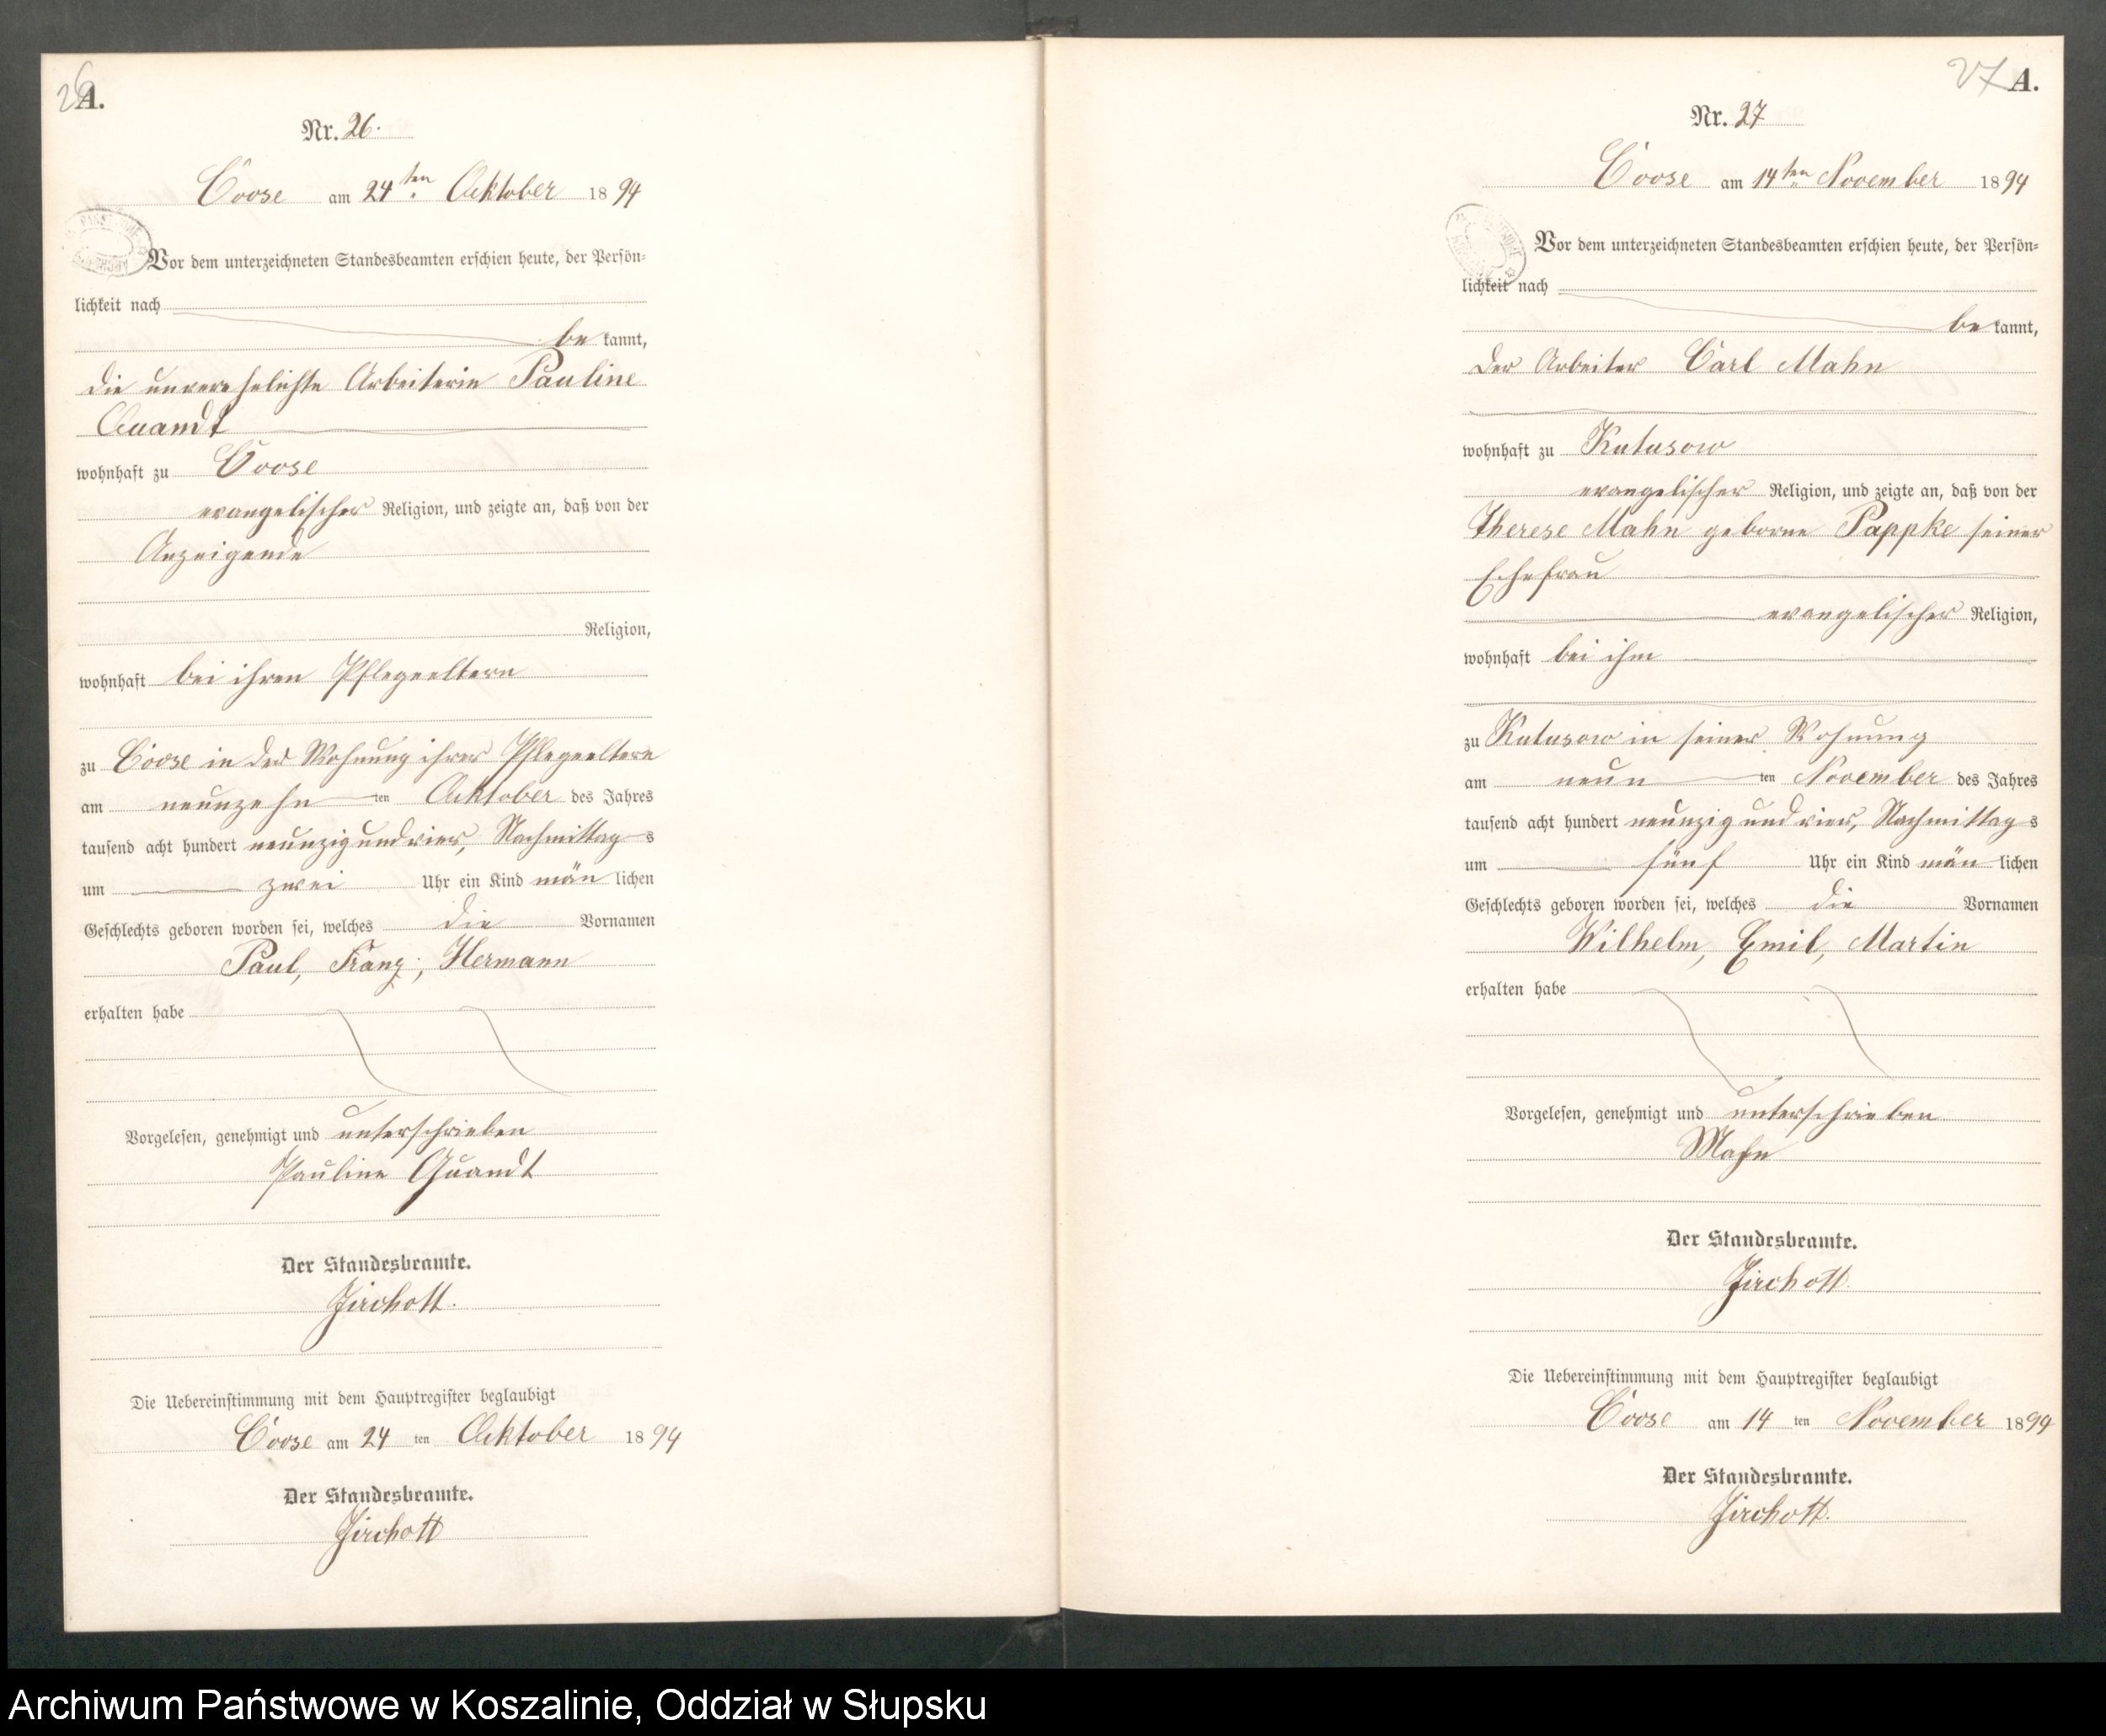 26
A.
Nr. 26.
Coose am 24ten Oktober 1894
Vor dem unterzeichneten Standesbeamten erschien heute, der Persön-
lichkeit nach
be kannt,
die unverehelichte Arbeiterin Pauline
Quandt
wohnhaft zu Coose
evangelischer Religion, und zeigte an, daß von der
Anzeigende
Religion,
wohnhaft bei ihren Pflegeeltern
zu Coose in der Wohnung ihrer Pflegeeltern
am neunzehn ten Oktober des Jahres
tausend acht hundert neunzig und vier, Nachmittag s
um zwei Uhr ein Kind män lichen
Geschlechts geboren worden sei, welches die Vornamen
Paul, Franz, Hermann
erhalten habe
Vorgelesen, genehmigt und unterschrieben
Pauline Quandt
Der Standesbeamte.
Zirchott.
Die Uebereinstimmung mit dem Hauptregister beglaubigt
Coose am 24 ten Oktober 1894
Der Standesbeamte.
Zirchott
27
A.
Nr. 27
Coose am 14ten November 1894
Vor dem unterzeichneten Standesbeamten erschien heute, der Persön-
lichkeit nach
be kannt,
der Arbeiter Carl Mahn
wohnhaft zu Kutusow
evangelischer Religion, und zeigte an, daß von der
Therese Mahn geborne Pappke seiner
Ehefrau
evangelischer Religion,
wohnhaft bei ihm
zu Kutusow in seiner Wohnung
am neun ten November des Jahres
tausend acht hundert neunzig und vier, Nachmittag s
um fünf Uhr ein Kind män lichen
Geschlechts geboren worden sei, welches die Vornamen
Wilhelm, Emil, Martin
erhalten habe
Vorgelesen, genehmigt und unterschrieben
Mahn
Der Standesbeamte.
Zirchott.
Die Uebereinstimmung mit dem Hauptregister beglaubigt
Coose am 14 ten November 1894
Der Standesbeamte.
Zirchott.
Archiwum Państwowe w Koszalinie, Oddział w Słupsku